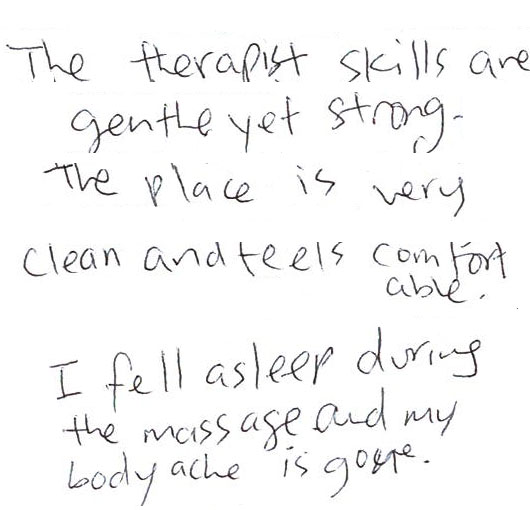 The therapist skills are
genthe yet strong.
The place is very
clean and feels comfort
able.
I fell asleep during
the massage and my
body ache is gone.